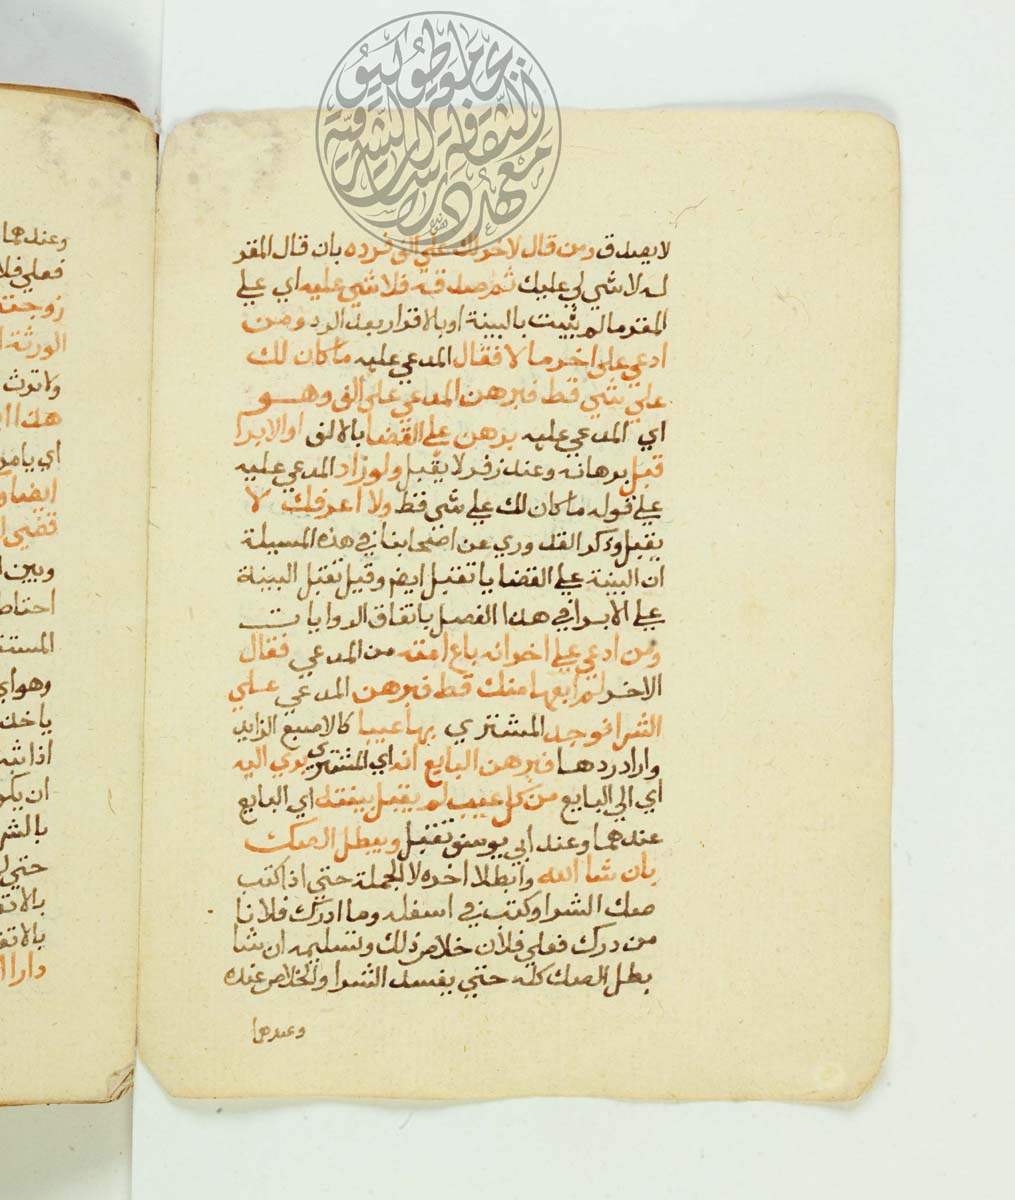 لا يصدق ومن قال لاخر لك علي الف فرده بان قال المقر
له لا شي لي عليك ثم صدقه فلا شي عليه اي علي
المقر ما لم يثبت بالبينة او بالاقرار بعد الرد ومن
ادعي علي اخر مالا فقال المدعي عليه ما كان لك
علي شي قط فبرهن المدعي علي الف وهو
اي المدعي عليه برهن علي القضا بالالف او الابرا
قبل برهانه وعند زفر لا يقبل ولو زاد المدعي عليه
علي قوله ما كان لك علي شي قط ولا اعرفك لا
يقبل وذكر القدوري عن اصحابنا في هذه المسيلة
ان البينة علي القضايا تقبل ايضم وقيل تقبل البينة
علي الابرا في هذا الفصل باتفاق الروايات
ومن ادعي علي اخر انه باع امته من المدعي فقال
الاخر لم ابعها منك قط فبرهن المدعي علي
الشرا فوجد المشتري بها عيبا كالاصبع الزايد
واراد ردها فبرهن البايع انه اي المشتري بري اليه
اي الي البايع من كل عيب لم يقبل بينته اي البايع
عندهما وعند ابي يوسف تقبل ويبطل الصك
بان شا الله وابطلا اخره لا الجملة حتي اذا كتب
صك الشرا وكتب في اسفله وما ادرك فلانا
من درك فعلي فلان خلاص ذلك وتسليمه ان شا
بطل الصك كله حتي يفسد الشرا والخلاص عنده
وعندهما
وعندهما
فعلي فلا
زوجته
الورثة ا
ولا ترث
اي يامر
ايضا و
قضي ا
وبين ا
احتاط
وهو اي
ياخذ
ان يكو
بالشر
حتي ل
بالاتف
بالاتف
دارا ا